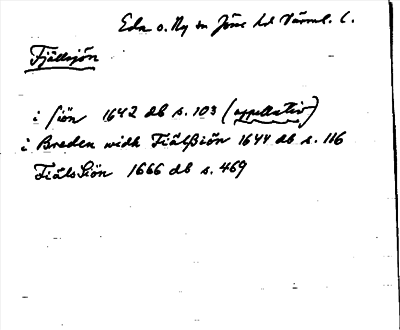 Eda o. Ny sn Jösse hd Värml. l.
Fjällsjön
i siön 1642 db s. 103 (appellativ)
i Breden widh Fiälßiön 1644 db s. 116
Fiälssiön 1666 db s. 469